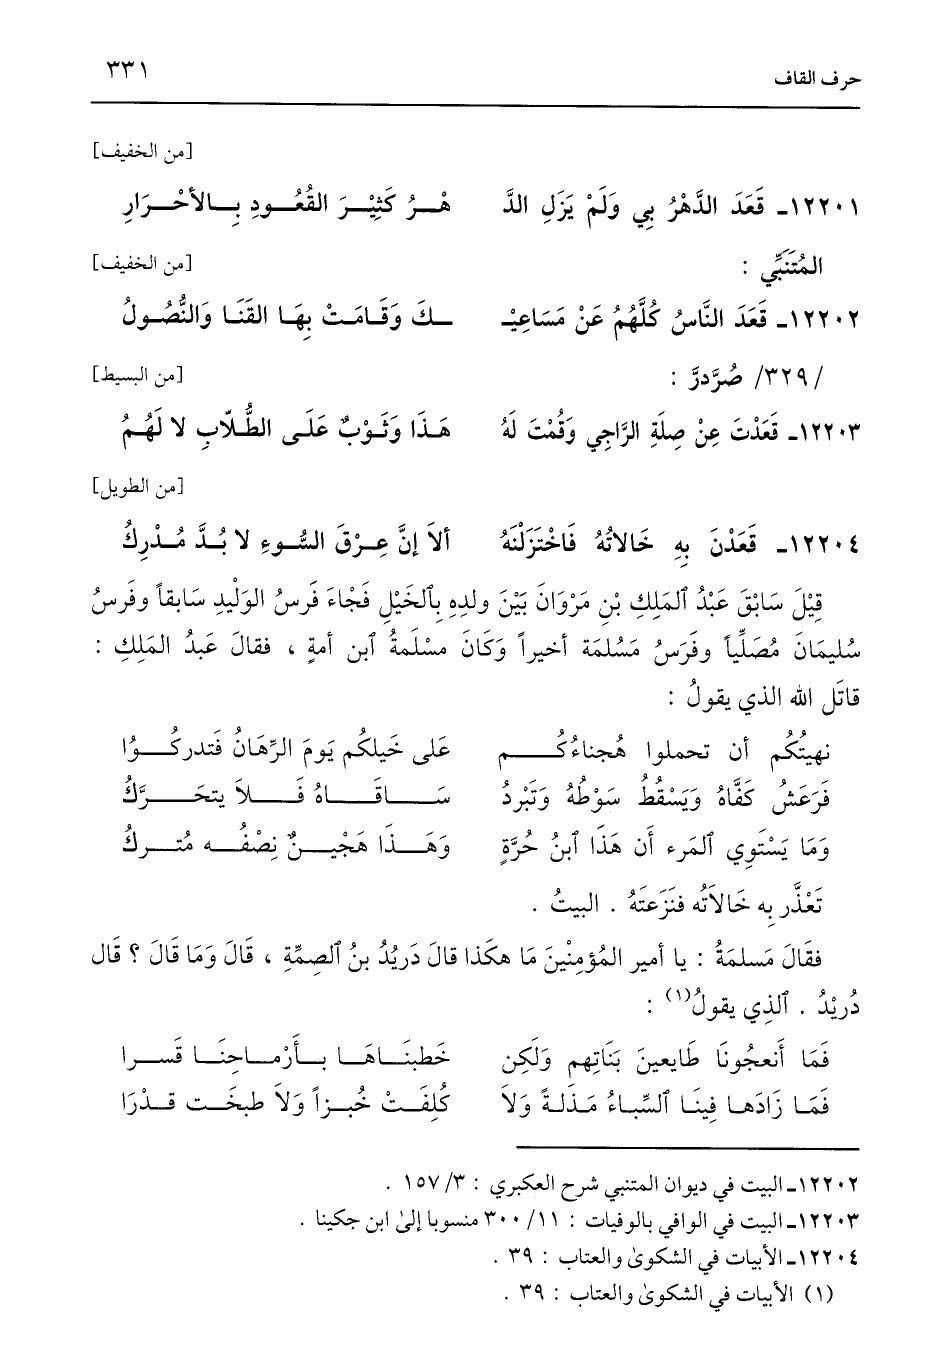 حرف القاف ٣٣١
[من الخفيف]
١٢٢٠١ـ قَعَدَ الدَّهْرُ بِي وَلَمْ يَزَلِ الدَّ هْرُ كَثِيْرَ القُعُودِ بِالأحْرَارِ
المُتَنَبِّي : [من الخفيف]
١٢٢٠٢ـ قَعَدَ النَّاسُ كُلُّهُمُ عَنْ مَسَاعِيْـ ـكَ وَقَامَتْ بِهَا القَنَا وَالنُّصُولُ
/٣٢٩/ صُرَّدرَّ : [من البسيط]
١٢٢٠٣ـ قَعَدْتَ عِنْ صِلَةِ الرَّاجِي وَقُمْتَ لَهُ هَذَا وَثَوْبٌ عَلَى الطُّلّابِ لا لَهُمُ
[من الطويل]
١٢٢٠٤ـ قَعَدْنَ بِهِ خَالاتُهُ فَاخْتَزَلْنَهُ ألاَ إنَّ عِرْقَ السُّوءِ لا بُدَّ مُدْرِكُ
قِيْلَ سَابَقَ عَبْدُ ٱلمَلِكِ بْنِ مَرْوَانَ بَيْنَ ولدِهِ بِٱلخَيْلِ فَجْاءَ فَرسُ الوَلْيدِ سَابقاً وفَرسُ
سُليمَانَ مُصَلِّياً وفَرَسُ مَسُلمَة أخيراً وَكَانَ مسْلَمَةُ ٱبن أمةٍ ، فقالَ عَبدُ المَلِكِ :
قاتَل الله الذي يقولُ :
نهيتُكُم أن تحملوا هُجناءُكُم عَلى خَيلكُم يَومَ الرِّهَانُ فَتدركُوُا
فَرَعَشُ كَفَّاهُ وَيَسْقُطُ سَوْطُهُ وَتَبْردُ سَاقَاهُ فَلاَ يتحَرَّكُ
وَمَا يَسْتَوِي ٱلمَرء أن هَذَا ٱبنُ حُرَّةٍ وَهَذَا هَجْينٌ نِصْفُه مُتركُ
تَعْذَّر بِه خَالاَتُه فنَزَعتَهُ . البيتُ .
فقَالَ مَسلمَةُ : يا أمير المُؤمِنْينَ مَا هكَذا قالَ دَريُدُ بنُ ٱلصِمِّةِ ، قَالَ وَمَا قَالَ ؟ قَال
دُريْدُ . ٱلذِي يقولُ(١) :
فَمَا أَنعجُونَا طَايعينَ بَنَاتِهم وَلَكِن خَطبنَاهَا بأَرْمَاحِنَا قَسرا
فَمَا زَادَهَا فِينَا ٱلسِّباءُ مَذلةً وَلاَ كُلِفَتْ خُبزاً وَلاَ طبخَت قدْرَا
١٢٢٠٢ـ البيت في ديوان المتنبي شرح العكبري : ١٥٧/٣ .
١٢٢٠٣ـ البيت في الوافي بالوفيات : ٣٠٠/١١ منسوبا إلىٰ ابن جكينا .
١٢٢٠٤ـ الأبيات في الشكوىٰ والعتاب : ٣٩ .
(١) الأبيات في الشكوىٰ والعتاب : ٣٩ .